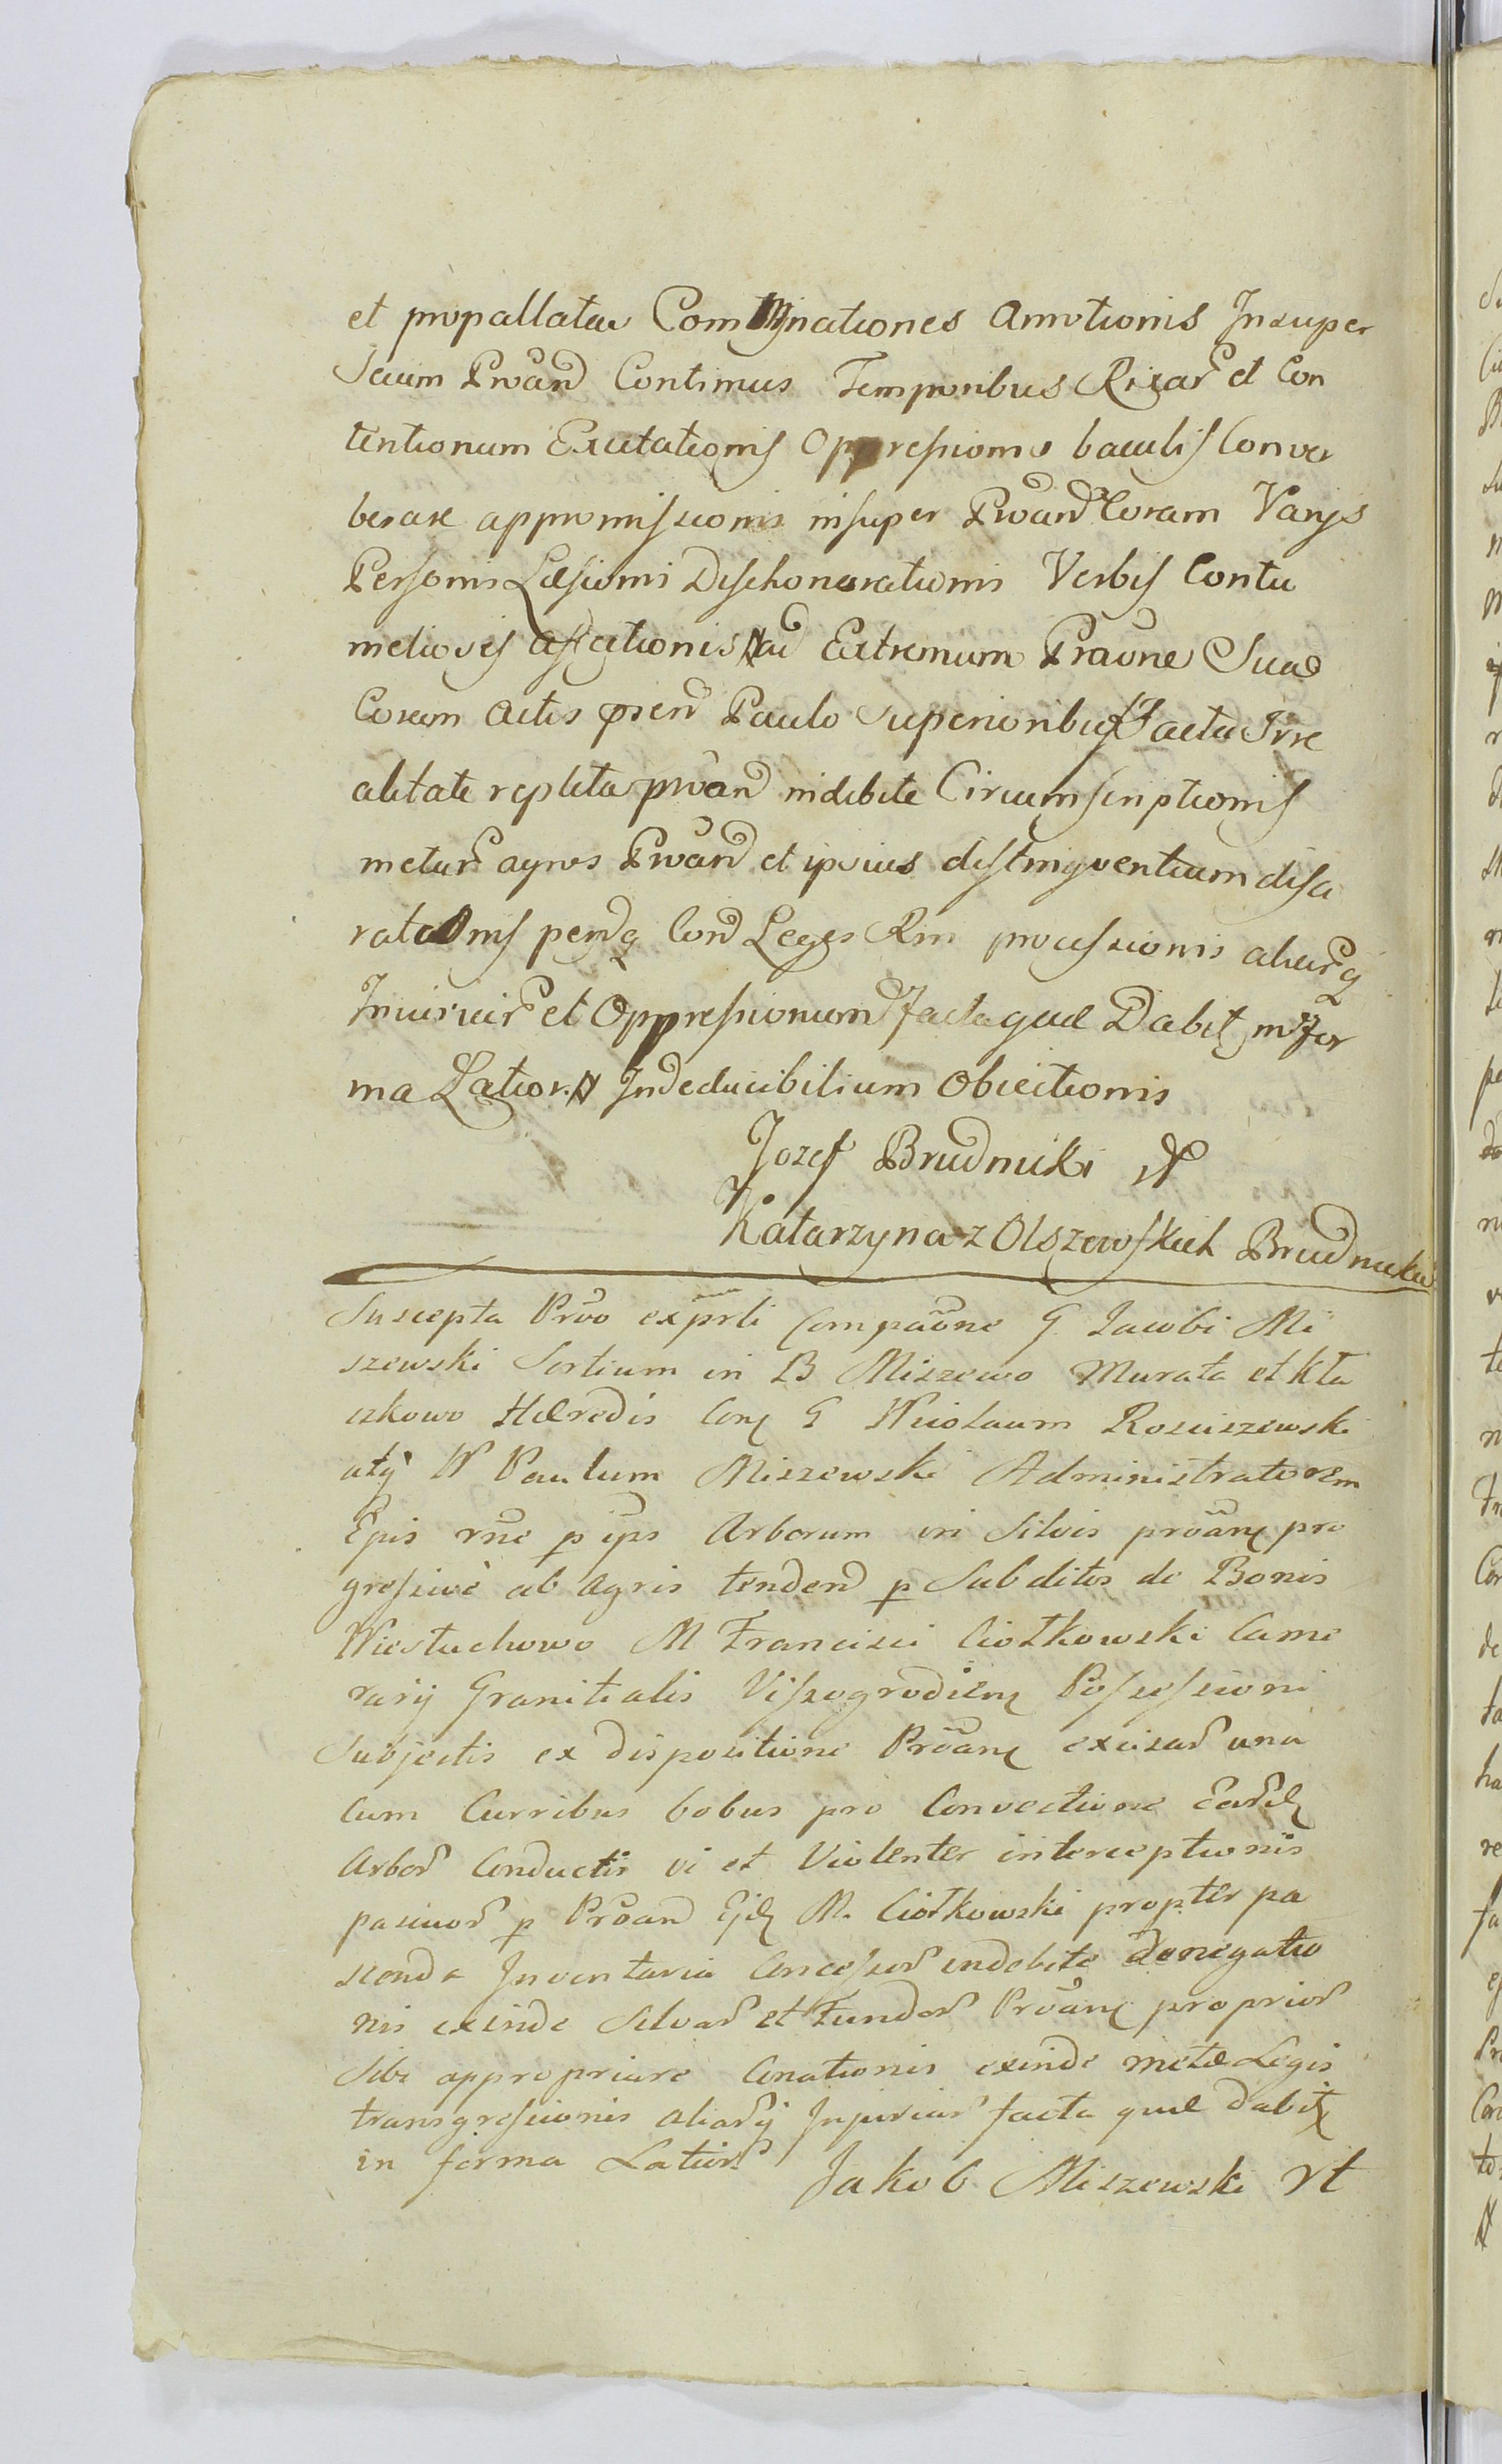 et propallatae Comminationes Amotionis Insuper
Secum Proand Continuis Temporibus Rixar et Con
tentionum Excitationis Oppressionis baculis Conver
berare appromissionis insuper Proand Coram Varys
Personis Læsionis Dishonorationis Verbis Contu
meliosis Ad Extremum Praõne Sua
Coram Actis præn Paulo Superioribus Facta Irre
alitate repleta proan indebite Circumscriptionis
metar agros Proand et ipsius distingventium disa
rationis pend Con Leges Rni processionis aliar
Iniuriar et Oppressionum facta quæ Dabit in For
ma Latior. Indeducibilium Obiectionis
Jozef Brudnicki
Katarzyna z Olszewskich Brudnicka
Suscepta Proõ exprli Compaõne G. Jacobi Mi
szewski Sortium in B Miszewo Murata et Kta
czkowo Hæredis Con G Nicolaum Rosciszewski
atq M Paulum Miszewski Administratorem
Epis rne p ips Arborum in Silvis proãn pro
gressive ab Agris tendend p Subditos de Bonis
Wiestuchowo M Francisci Ciołkowski Came
rarij Granitialis Vissogrodien Possessioni
Subjectis ex dispositione Proãn excisar una
Cum Curribus bobus pro Convectione eard
Arbor Conductis vi et Violenter interceptionis
pascuor p Proand Ejd M. Ciołkowski propter pa
scenda Inventaria Concessor indebite denegatio
nis exinde Silvar et Fundor Proãn proprior
Sibi appropriare Conationis exinde metæ Legis
transgressionis aliarq Injuriar facta quæ dabit
in forma Latiori
Jakob Miszewski